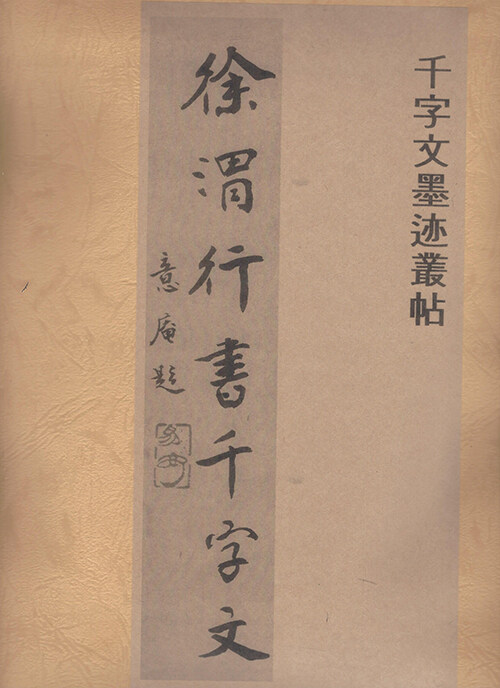 千字文墨迹叢帖
徐渭行書千字文
意庵題